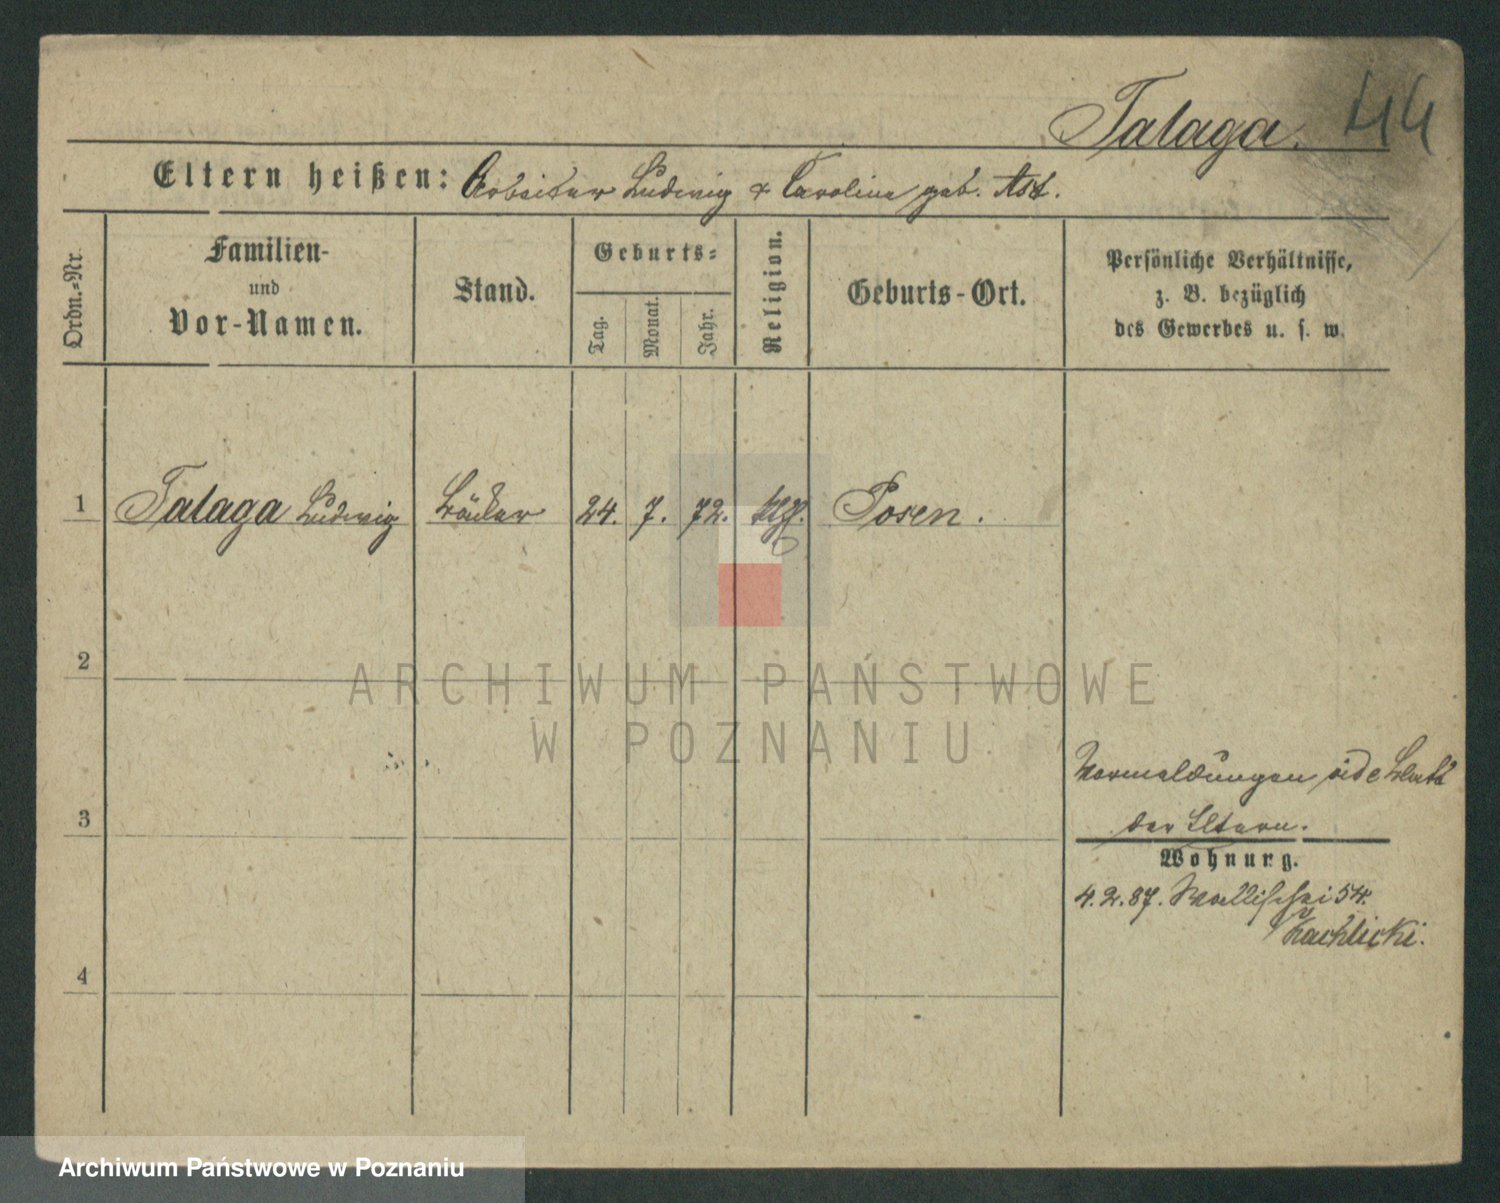 Talaga. 44
Eltern heißen: Arbeiter Ludwig & Carolina geb. Ast.
Ordn.-Nr.
Familien-
und
Vor-Namen.
Stand.
Geburts-
Tag.
Monat.
Jahr.
Religion.
Geburts-Ort.
Persönliche Verhältnisse,
z. B. bezüglich
des Gewerbes u. s. w.
1 Talaga Ludwig Bäcker 24. 7. 72. kth. Posen.
2
3
4
Vormeldungen vide Blatt
der Eltern.
Wohnung.
4.2.87. Wallischei 54.
Kachlicki.
ARCHIWUM PAŃSTWOWE
W POZNANIU
Archiwum Państwowe w Poznaniu